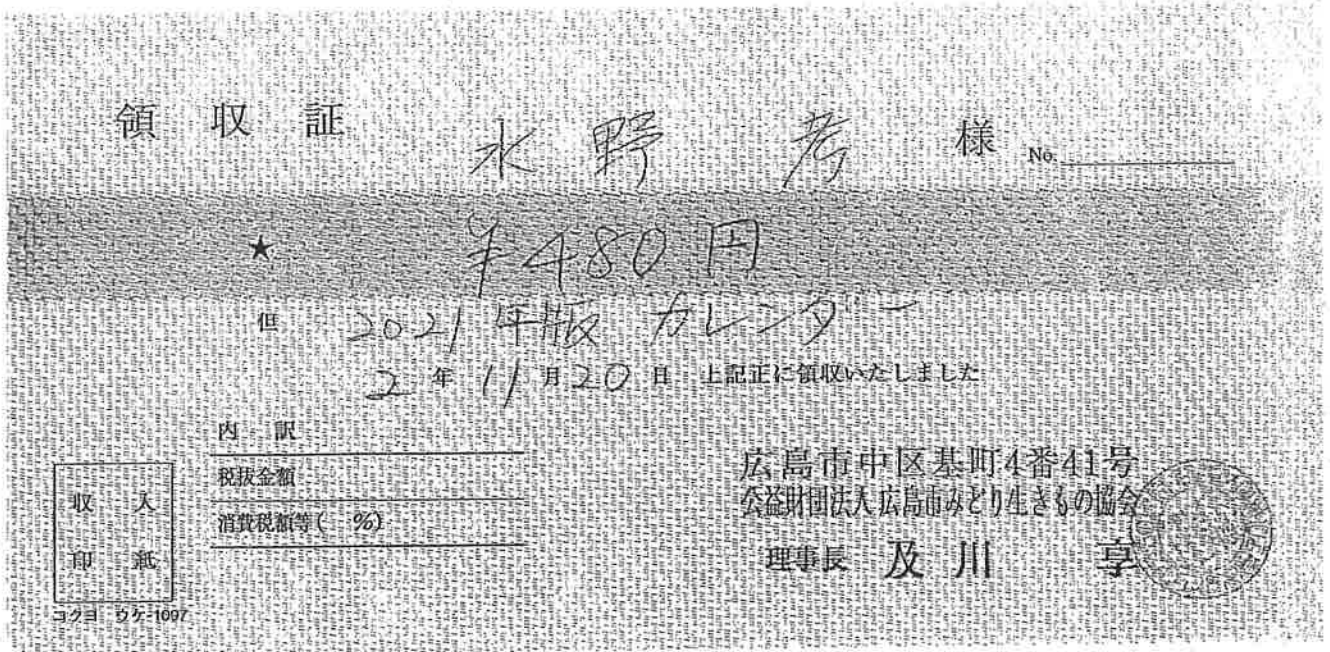 領収証 水野 考 様 No.
★ ¥480円
但 2021年版 カレンダー
2年11月20日 上記正に領収いたしました
内訳
税抜金額
消費税額等( %)
収入
印紙
コクヨ ウケ-1097
広島市中区基町4番41号
公益財団法人広島市みどり生きもの協会
理事長 及川 享